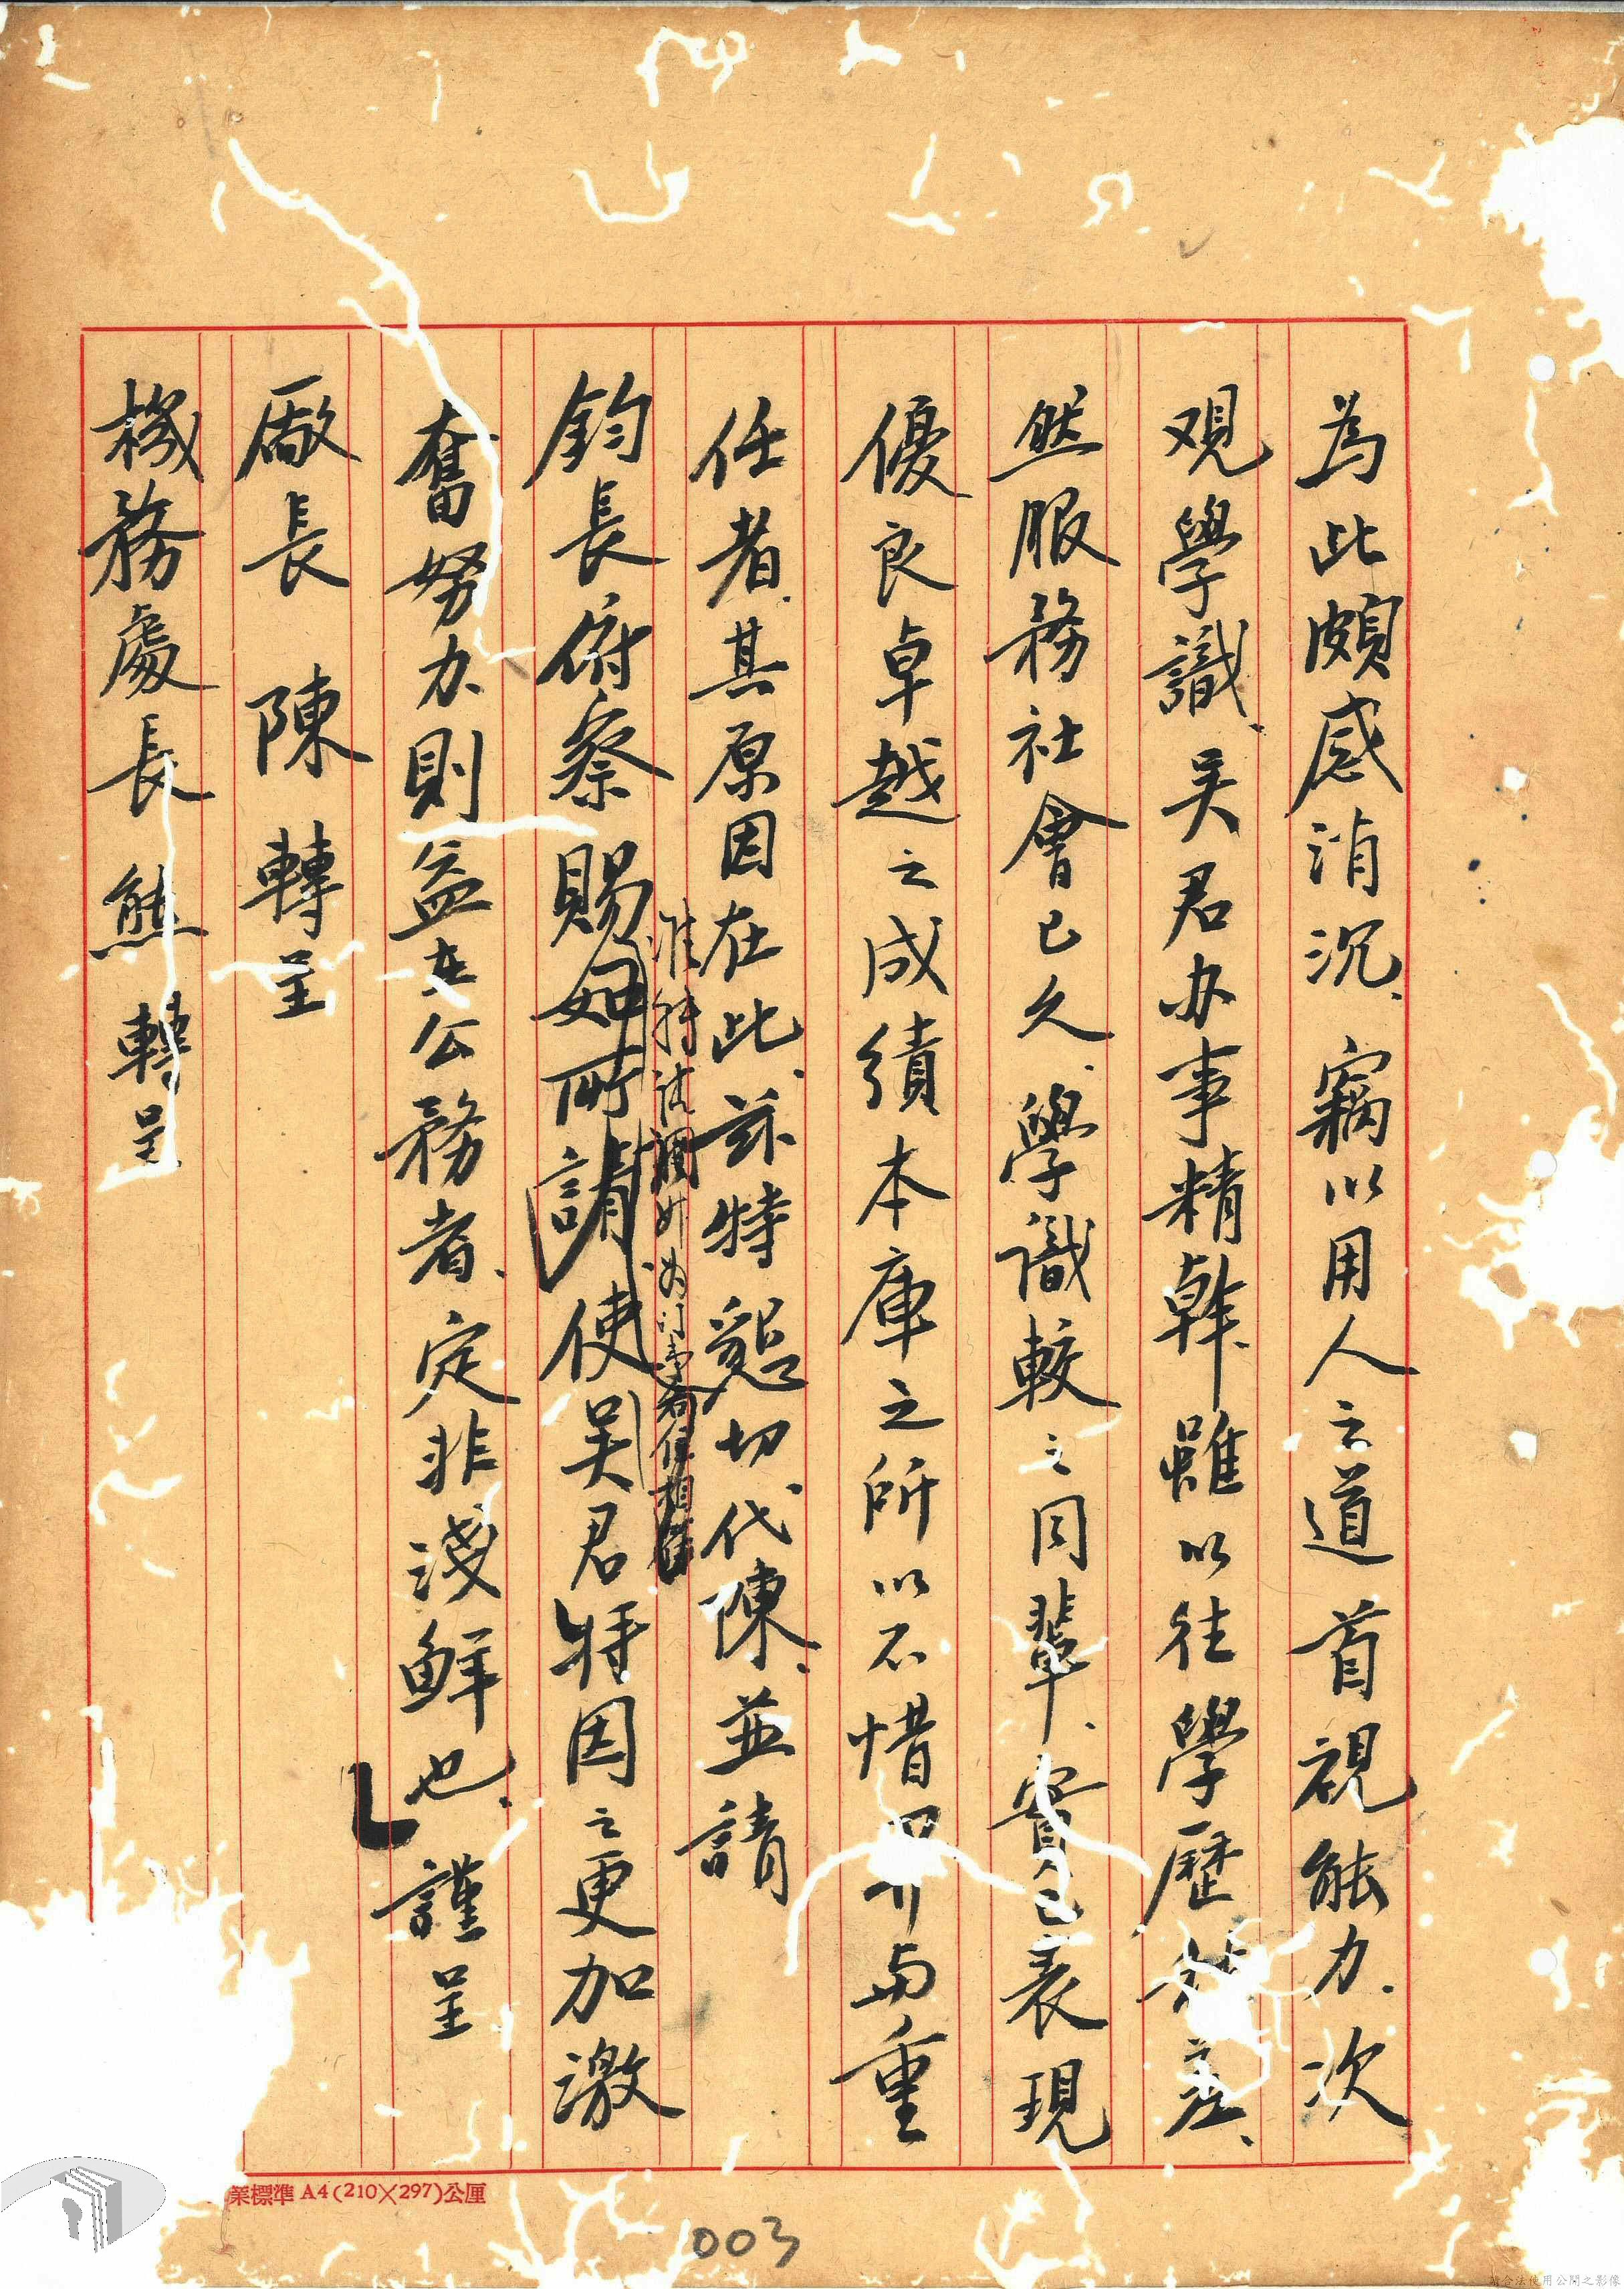 為此頗感消沉、竊以用人之道首視能力、次
观學識、吴君办事精幹、雖以往學歷差、
然服務社會已久、學識較之同輩、實已表現
優良卓越之成績本庫之所以不惜畀与重
任者、其原因在此、茲特懇切代陳、並請
鈞長俯察賜如所請使吴君特因之更加激
准特請調升為
奮努力、則益在公務者、定非淺鮮也、謹呈
廠長 陳 轉呈
機務處長 熊 轉呈
業標準A4(210×297)公厘
003